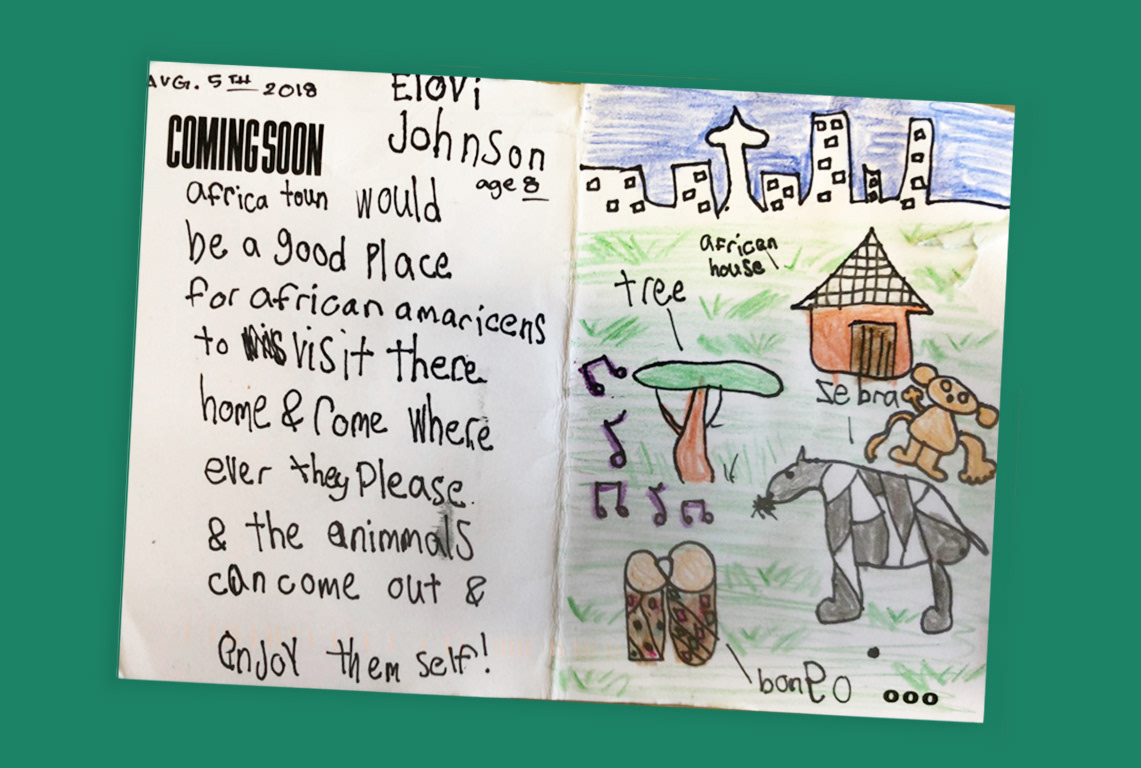 AVG. 5TH 2018
Elovi
Johnson
age 8
COMING SOON
africa toun would
be a good place
for african amaricens
to visit there
home & Come where
ever they please
& the animmals
can come out &
enjoy them self!
african
house
tree
zebra
bongo